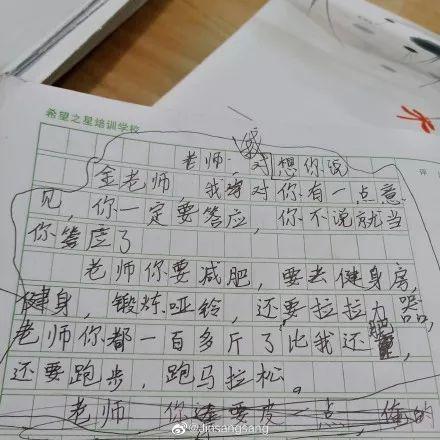 希望之星培训学校
评
老师,我对想你说
金老师,我对你有一点意
见,你一定要答应,你不说就当
你答应了
老师你要减肥,要去健身房,
健身,锻炼哑铃,还要拉拉力器,
老师你都一百多斤了比我还肥,
还要跑步,跑马拉松。
老师 你 要 一点,
@Jinsangsang